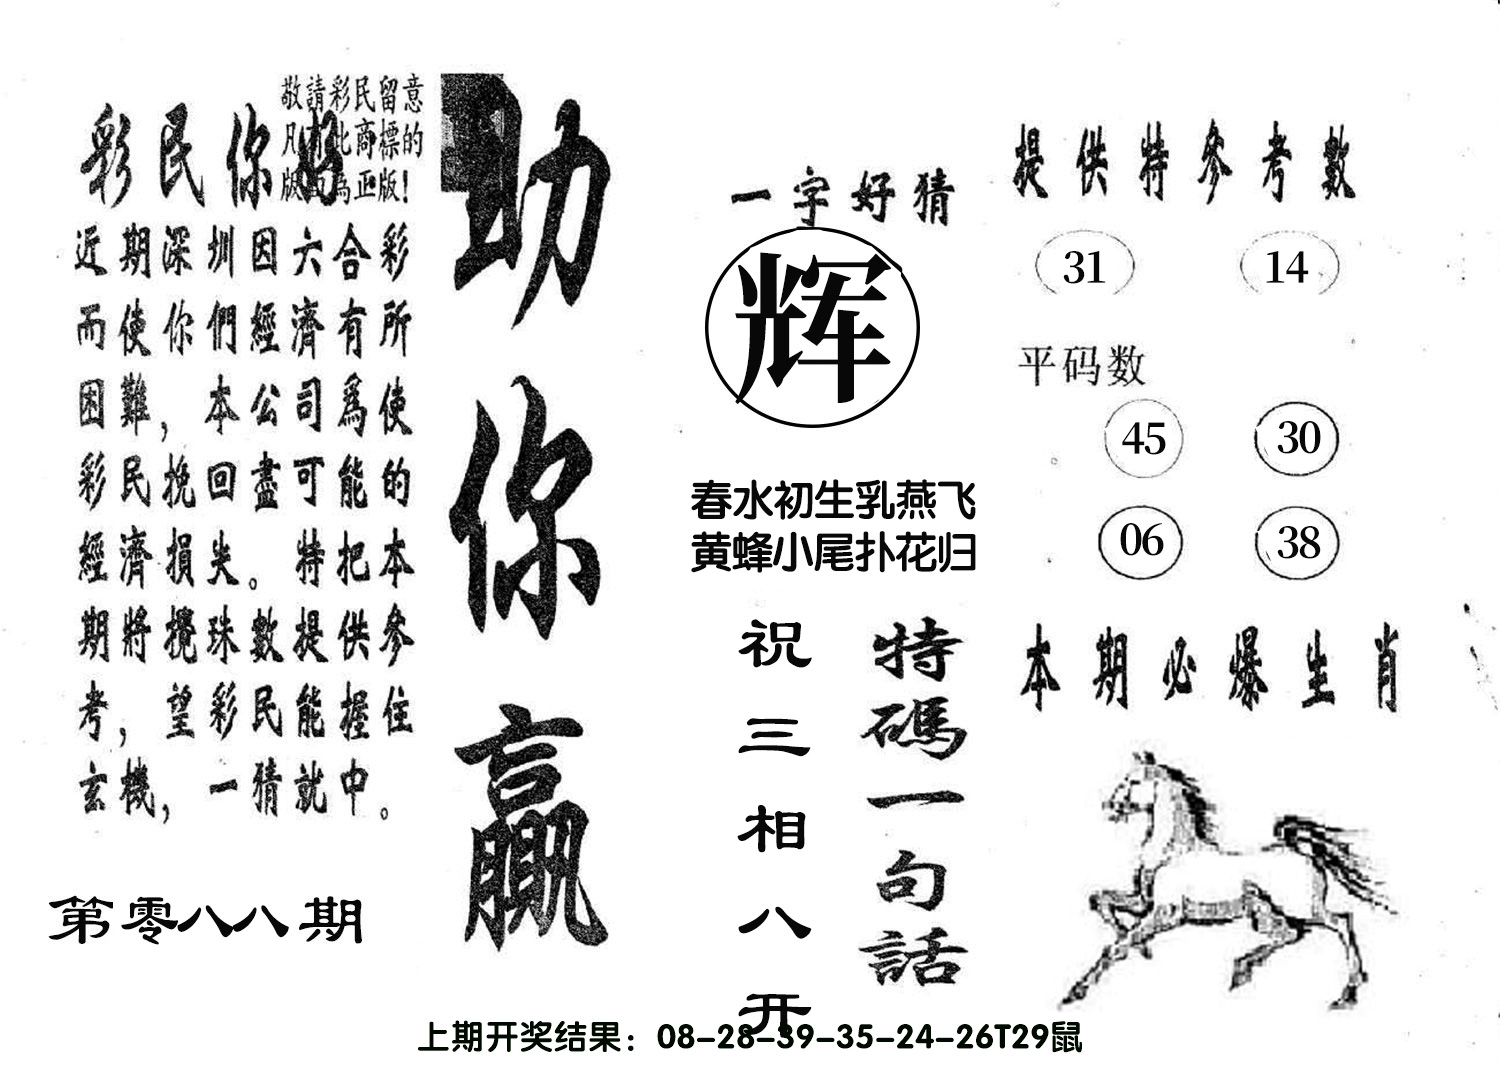 敬請彩民留意
凡有此商標的
版面為正版！
彩民你好
近期深圳因六合彩
而使你們經濟有所
困難，本公司爲使
彩民挽回盡可能的
經濟損失。特把本
期將攪珠數提供參
考，望彩民能握住
玄機，一猜就中。
第零八八期
助你贏
一字好猜
辉
春水初生乳燕飞
黄蜂小尾扑花归
特碼一句話
祝三相八开
提供特參考數
31 14
平码数
45 30
06 38
本期必爆生肖
上期开奖结果：08-28-39-35-24-26T29鼠